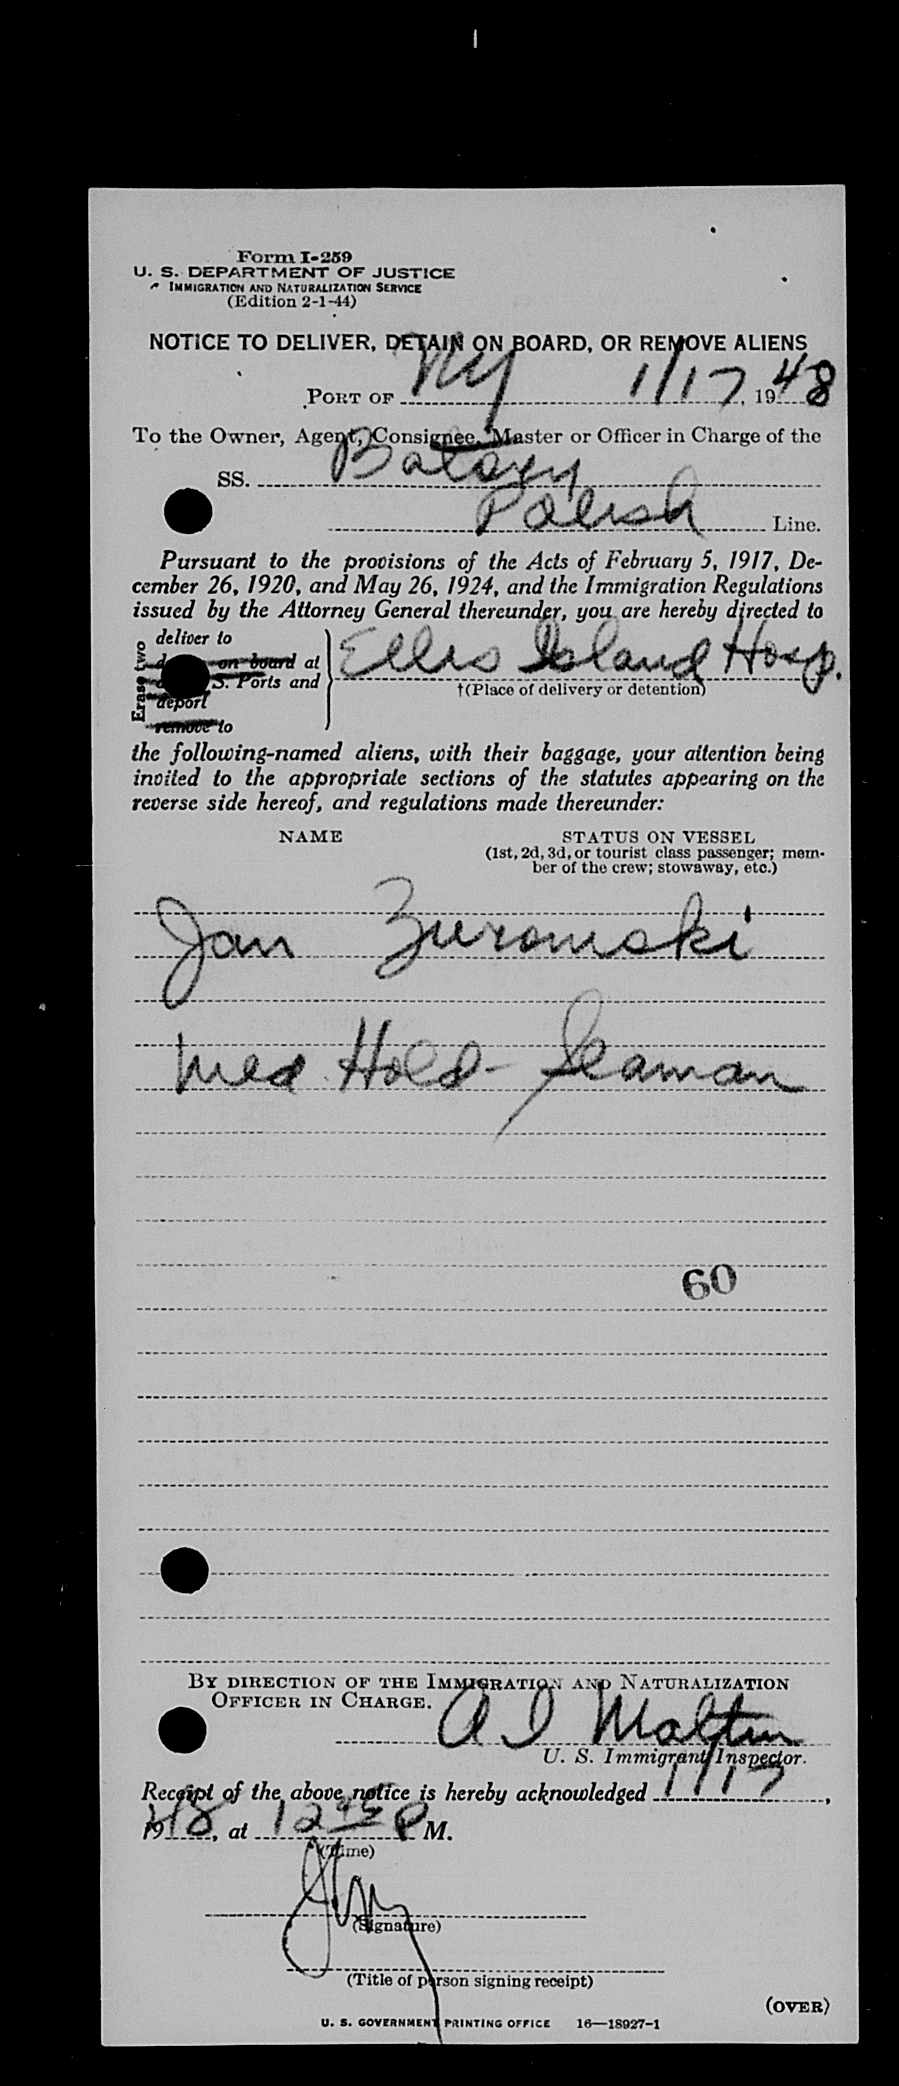 Form I-259
U. S. DEPARTMENT OF JUSTICE
IMMIGRATION AND NATURALIZATION SERVICE
(Edition 2-1-44)
NOTICE TO DELIVER, DETAIN ON BOARD, OR REMOVE ALIENS
PORT OF NY 1/17, 1948
To the Owner, Agent, Consignee, Master or Officer in Charge of the
SS. Batory
Polish Line.
Pursuant to the provisions of the Acts of February 5, 1917, De-
cember 26, 1920, and May 26, 1924, and the Immigration Regulations
issued by the Attorney General thereunder, you are hereby directed to
Erase two
deliver to
on board at
S. Ports and
deport
remove to
Ellis Island Hosp.
†(Place of delivery or detention)
the following-named aliens, with their baggage, your attention being
invited to the appropriate sections of the statutes appearing on the
reverse side hereof, and regulations made thereunder:
NAME STATUS ON VESSEL
(1st, 2d, 3d, or tourist class passenger; mem-
ber of the crew; stowaway, etc.)
Jan Zuromski
Med Hold - Seaman
60
BY DIRECTION OF THE IMMIGRATION AND NATURALIZATION
OFFICER IN CHARGE.
A I
U. S. Immigrant Inspector.
Receipt of the above notice is hereby acknowledged 1/17,
1948, at 12 45 P M.
(Time)
(Signature)
(Title of person signing receipt)
(OVER)
U. S. GOVERNMENT PRINTING OFFICE 16—18927-1